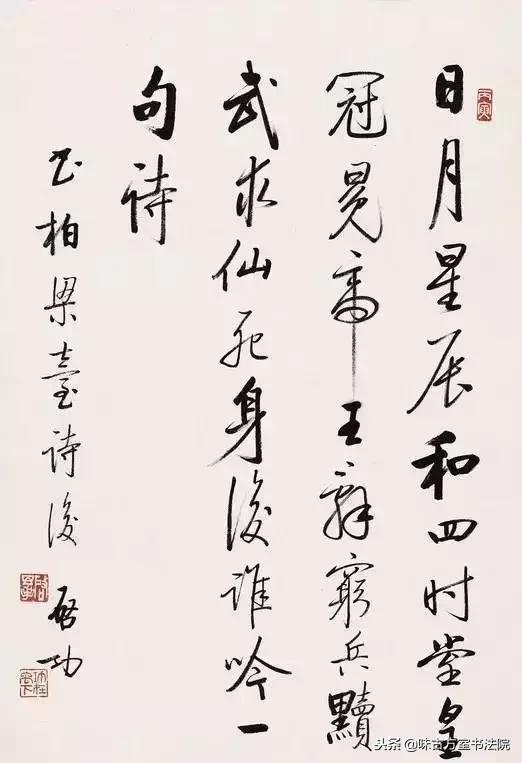 日月星辰和四时堂皇
冠冕帝王辞穷兵黩
武求仙死身後谁吟一
句诗
书柏梁臺诗後
启功
头条@味古方室书法院